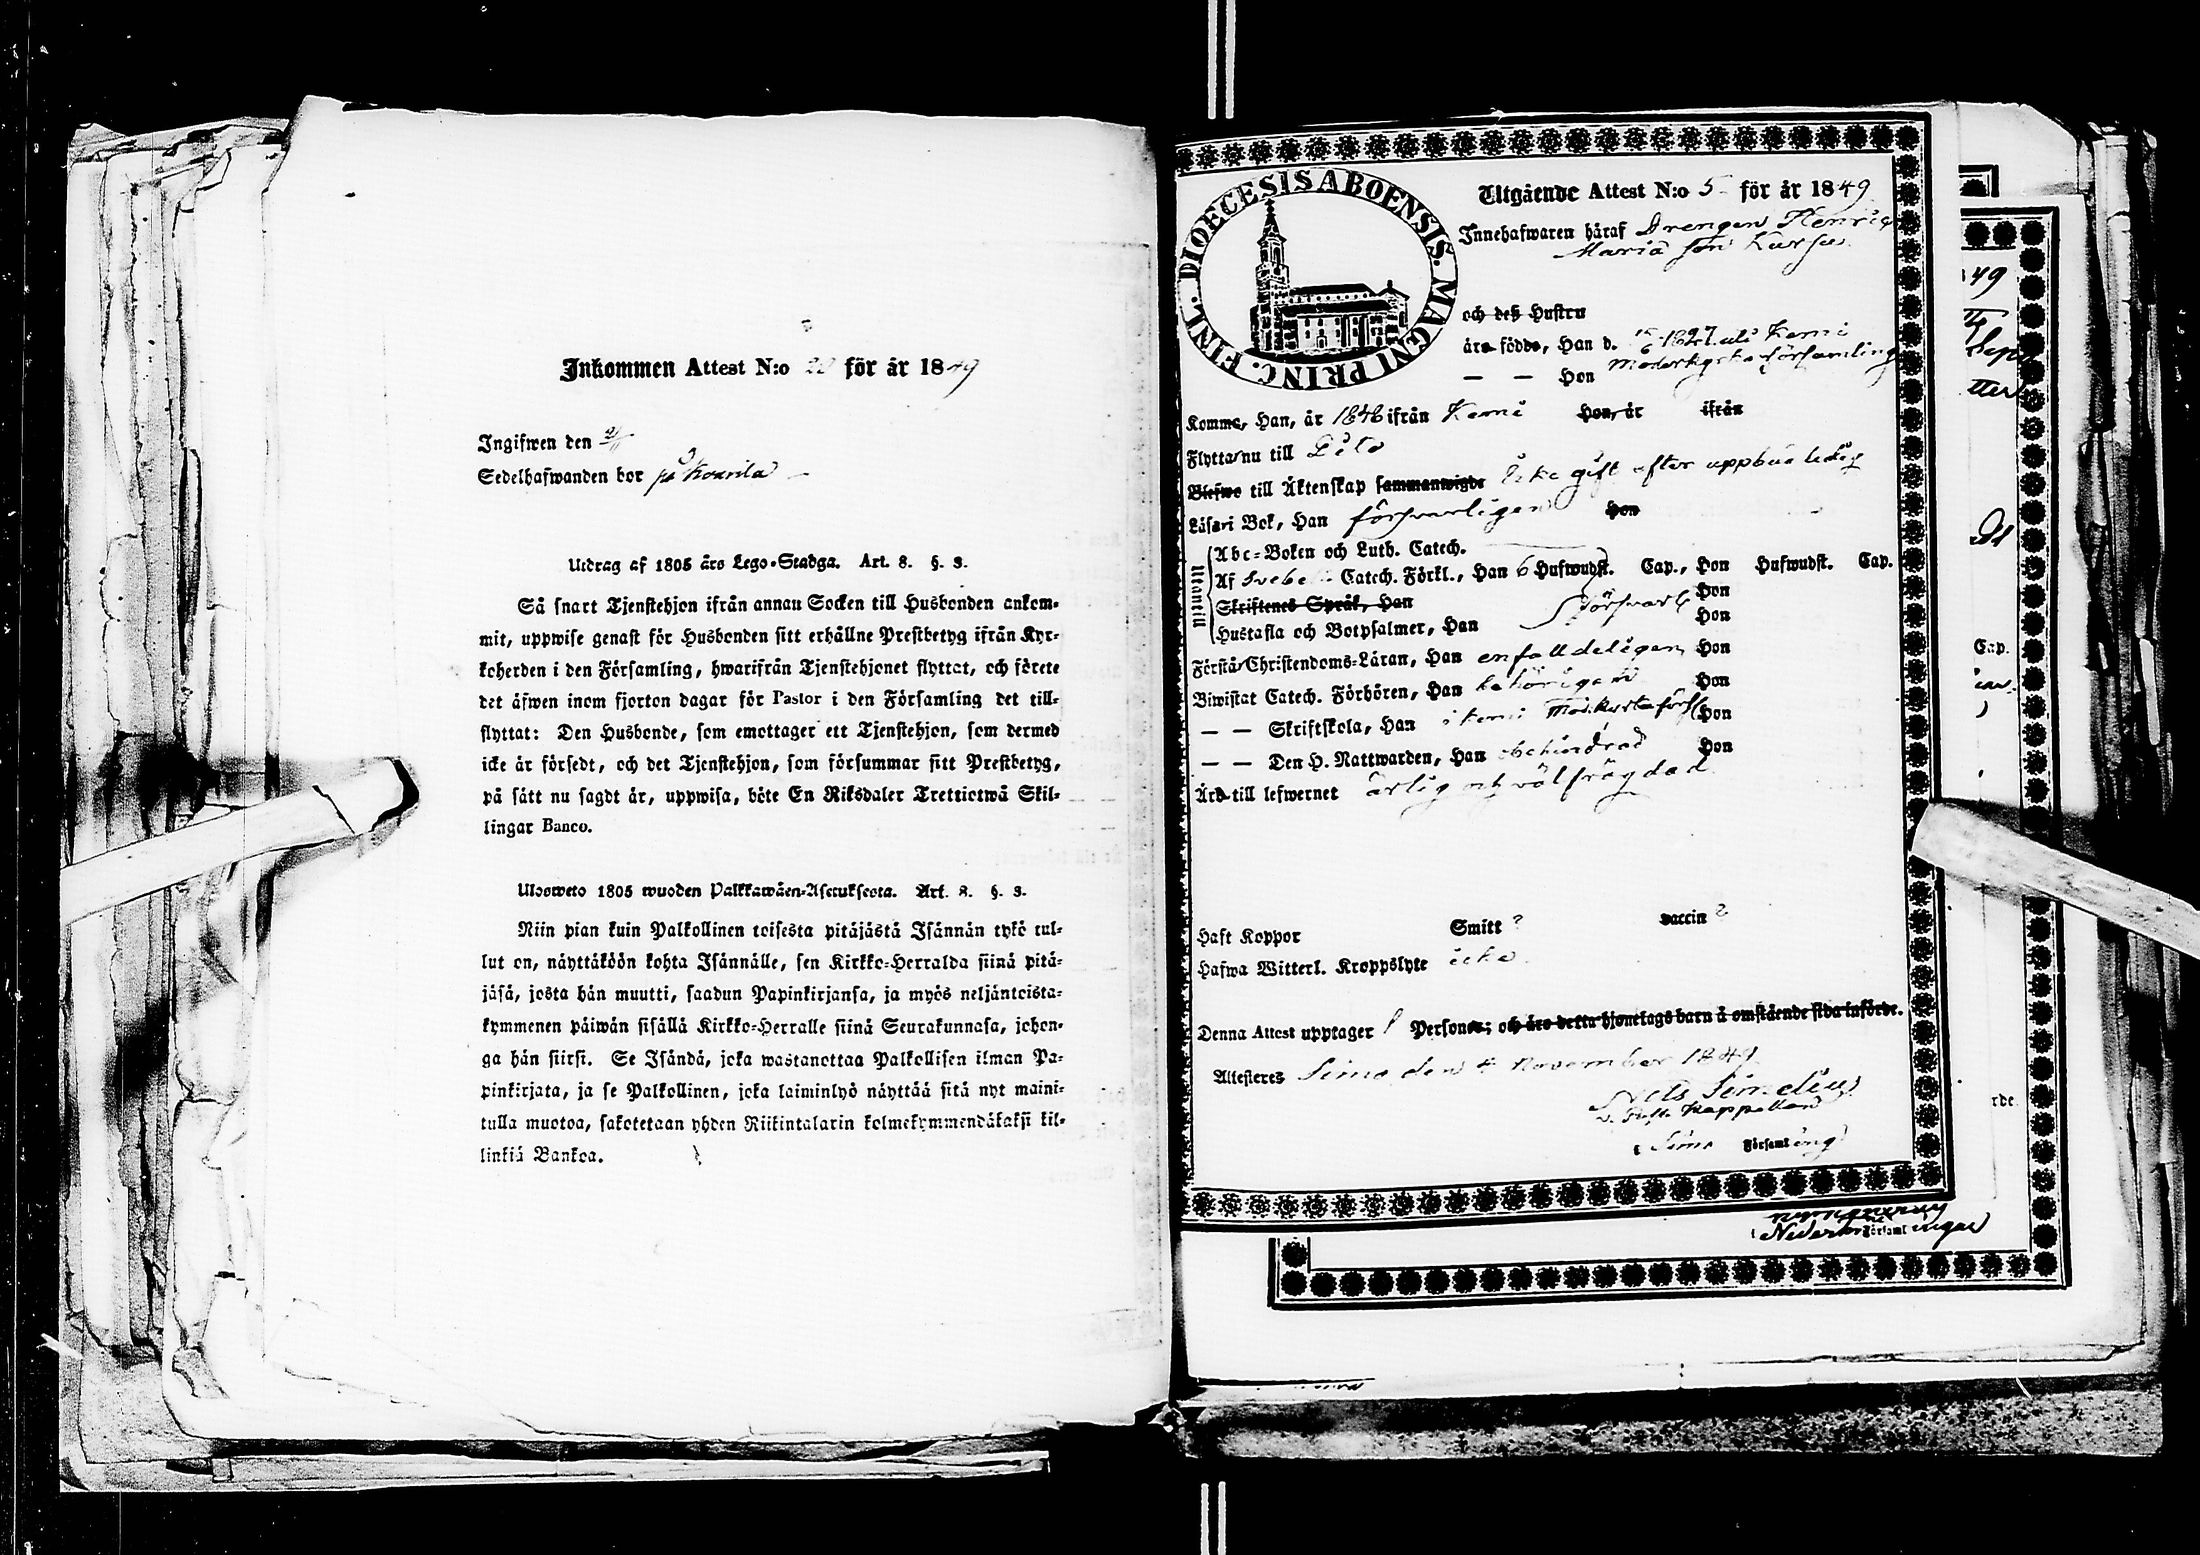 Inkommen Attest N:o 22 för år 1849
Ingifwen den
Sedelhafwanden bor på Kourila
Utdrag af 1805 års Lego-Stadga. Art. 8. §. 3.
Så snart Tjenstehjon ifrån annan Socken till Husbonden ankom-
mit, uppwise genast för Husbonden sitt erhållne Prestbetyg ifrån Kyr-
koherden i den Församling, hwarifrån Tjenstehjonet flyttat, och förete
det äfwen inom fjorton dagar för Pastor i den Församling det till-
flyttat: Den Husbonde, som emottager ett Tjenstehjon, som dermed
icke är försedt, och det Tjenstehjon, som försummar sitt Prestbetyg,
på sätt nu sagdt är, uppwisa, böte En Riksdaler Trettiotwå Skil-
lingar Banco.
Ulosweto 1805 wuoden Palkkawäen-Asetuksesta. Art. 8. §. 3.
Niin pian kuin Palkollinen toisesta pitäjästä Isännän tykö tul-
lut on, näyttäköön kohta Isännälle, sen Kirkko-Herralda siinä pitä-
jäsä, josta hän muutti, saadun Papinkirjansa, ja myös neljäntoista-
kymmenen päiwän sisällä Kirkko-Herralle siinä Seurakunnasa, johon-
ga hän siirsi. Se Isändä, joka wastanottaa Palkollisen ilman Pa-
pinkirjata, ja se Palkollinen, joka laiminlyö näyttää sitä nyt maini-
tulla muotoa, sakotetaan yhden Riikintalarin kolmekymmendäkaksi kil-
linkiä Bankoa.
DIOECESIS ABOENSIS. MAGNI PRINC. FINL.
Utgående Attest N:o 5 för år 1849
Innehafwaren häraf Drengen Henric
Maria son Kursu
och deß Hustru
äro födde, Han d. 1827 uti Kemi
— — Hon Moderkyrko församling
Komme, Han, år 1848 ifrån Kemi Hon, år ifrån
Flytta nu till
Blefwo till Äktenskap sammanwigde Icke gift efter uppbud ledig
Läsa i Bok, Han försvarligen Hon
Utantill
Abc-Boken och Luth. Catech.
Af Svebelii Catech. Förkl., Han 6 Hufwudst. Cap., Hon Hufwudst. Cap.
Skriftenes Språk, Han Hon
Hustafla och Botpsalmer, Han försvarl Hon
Förstå Christendoms-Läran, Han enfalldeligen Hon
Biwistat Catech. Förhören, Han behörigen Hon
— — Skriftskola, Han i Kemi Mod.kyrkoförs. Hon
— — Den H. Nattwarden, Han obehindrad Hon
Äro till lefwernet ärlig och välfrägdad
Haft Koppor Smitt ? vaccin ?
Hafwa Witterl. Kroppslyte icke
Denna Attest upptager 1 Personer; och äro detta hjonelags barn å omstående sida införde.
Attesteres Simo den 4 November 1849
Nils Simelius
Kappellan
i Simo Församling
49
Cap.
rde.
Församlingar